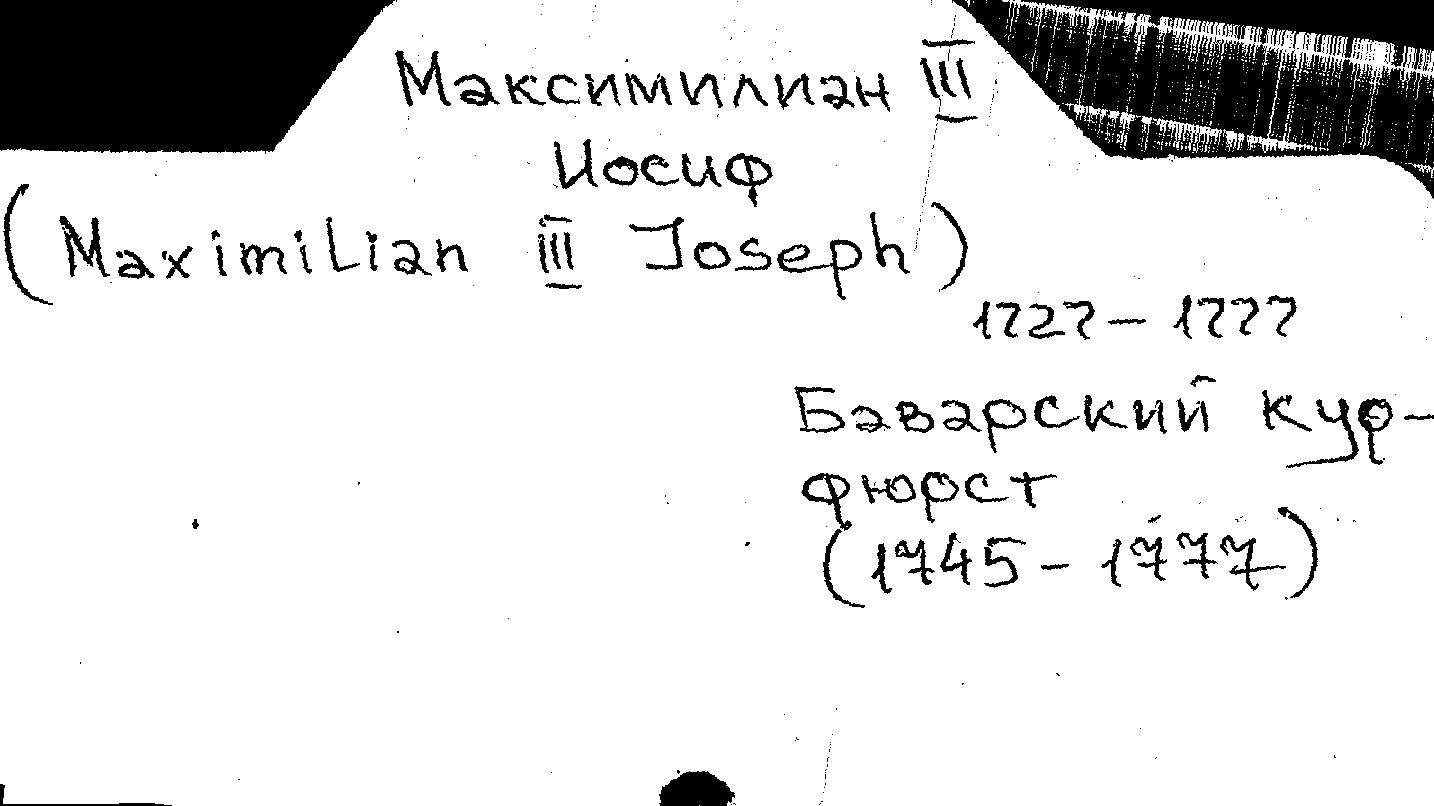 Максимилиан III
Иосиф
(Maximilian III Joseph)
1727 – 1777
Баварский кур-
фюрст
(1745 – 1777)